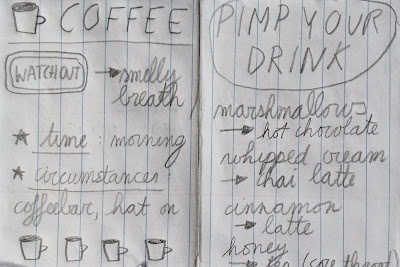 COFFEE
WATCH OUT → smelly
breath
★ time : morning
★ circumstances :
coffeebar, hat on
PIMP YOUR
DRINK
marshmallows
→ hot chocolate
whipped cream
→ chai latte
cinnamon
→ latte
honey
→ tea (sore throat)